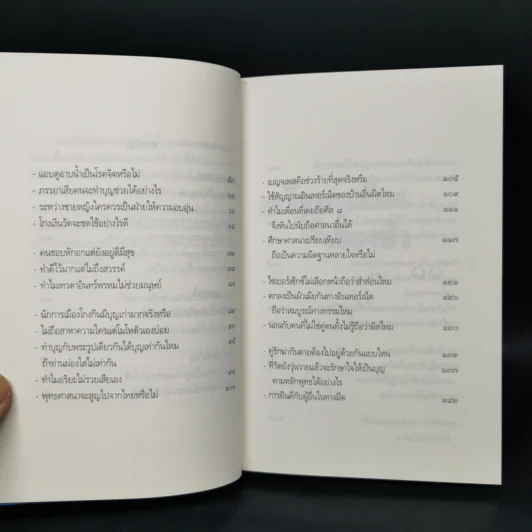 - แอบดูอาบน้ำเป็นโรคจิตหรือไม่
- ภรรยาเสียคนจะทำบุญช่วยได้อย่างไร
- ระหว่างชายหญิงใครควรเป็นฝ่ายให้ความอบอุ่น
- โกงเงินวัดจะชดใช้อย่างไรดี
- คนชอบหักอกแต่ยังอยู่ดีมีสุข
- ทำดีไว้มากแต่ไม่ถึงสวรรค์
- ทำไมเทวดาอินทร์พรหมไม่ช่วยมนุษย์
- นักการเมืองโกงกินมีบุญเก่ามากจริงหรือ
- ไม่ถือสาหาความใครแต่โมโหตัวเองบ่อย
- ทำบุญกับพระรูปเดียวกันได้บุญเท่ากันไหม
ถ้าท่านผ่องใสไม่เท่ากัน
- ทำไมอริยะไม่รวยเสียเอง
- พุทธศาสนาจะสูญไปจากไทยหรือไม่
- เบญจเพสคือช่วงร้ายที่สุดจริงหรือ ๑๐๕
- ใช้สัญญาณอินเทอร์เน็ตของบ้านอื่นผิดไหม ๑๐๙
- ทำไมเพื่อนที่เคยถือศีล ๘ ๑๑๑
จึงหันไปนับถือศาสนาอื่นได้
- ศึกษาศาสนาเปรียบเทียบ ๑๑๗
ถือเป็นความผิดฐานหลายใจหรือไม่
- ไซเบอร์เซ็กซ์ไม่เลือกหน้าถือว่าสำส่อนไหม ๑๒๑
- ตกลงเป็นผัวเมียกันทางอินเทอร์เน็ต ๑๒๖
ถือว่าสมบูรณ์ทางกรรมไหม
- นอนกับคนที่ไม่ใช่คู่ตนทั้งไม่รู้ถือว่าผิดไหม ๑๓๐
- คู่รักฆ่ากันตายต้องไปอยู่ด้วยกันแบบไหน ๑๓๓
- ชีวิตยังวุ่นวายแล้วจะรักษาใจให้เป็นบุญ ๑๓๗
ตามหลักพุทธได้อย่างไร
- การยินดีกับผู้อื่นในทางผิด ๑๔๒